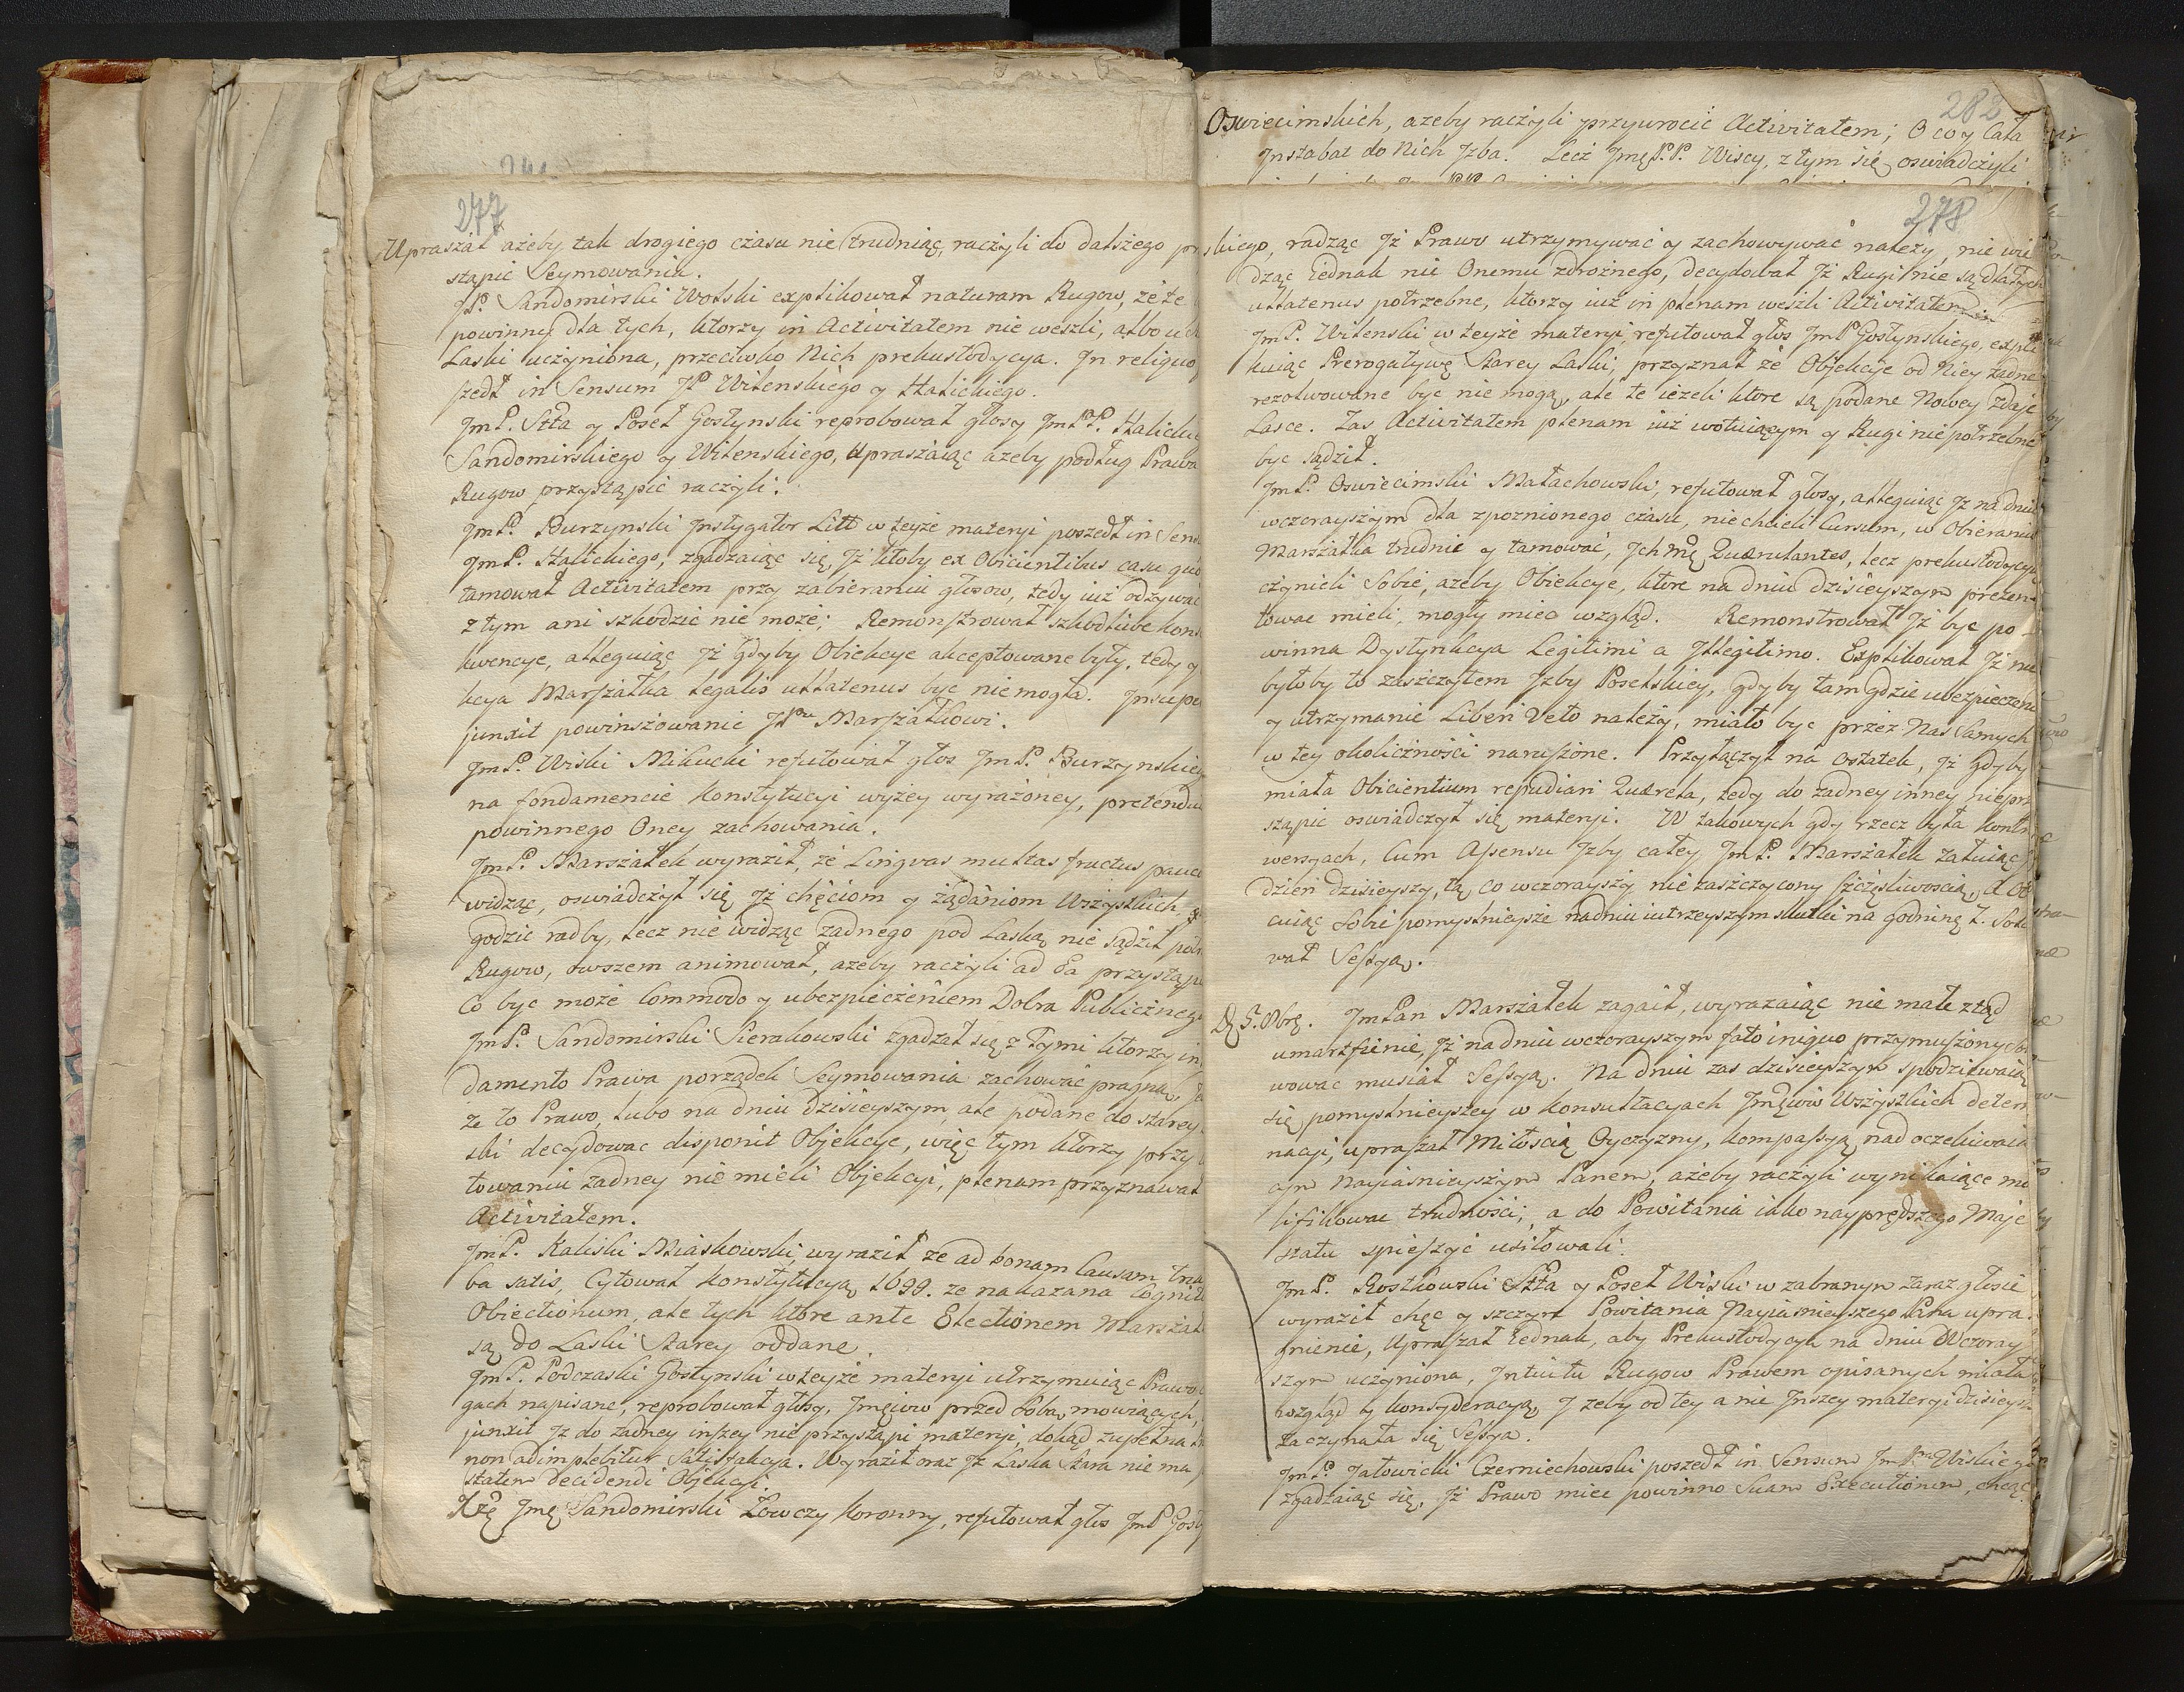 277
Upraszał ażeby tak drogiego czasu nie trudniąc, raczyli do dalszego
stąpić Seymowania.
JP. Sandomirski Wolski explikował naturam Rugow, że te
powinny dla tych, ktorzy in Activitatem nie weszli, albo
Laski uczyniona, przeciwko Nich prekustodycya. In reliquo
szedł in Sensum JP Wilenskiego y Halickiego.
JmP. Stta y Poseł Gostynski reprobował głosy JmPP.
Sandomirskiego y Wilenskiego, upraszaiąc ażeby podług Prawa
Rugow przystąpić raczyli.
JmP. Burzynski Instygator Litt w teyże materyi poszedł in
JmP. Halickiego, zgadzaiąc się, Jż ktoby ex Obicientibus casu quo
tamował Activitatem przy zabieraniu głosow, tedy iuż odzywać
z tym ani szkodzić nie może; Remonstrował szkodliwe
kwencye, alleguiąc Jż gdyby Obiekcye akceptowane były, tedy y
kcya Marszałka legalis ullatenus być nie mogła.
junxit powinszowanie JPnu Marszałkowi.
JmP. Wiski Mikucki refutował głos JmP. Burzynskie
na fondamencie Konstytucyi wyżey wyrażoney,
powinnego Oney zachowania.
JmP. Marszałek wyraził, że Lingvas multas fructus
widząc, oswiadczył się Jż chęciom y żądaniom Wszystkich
godzić radby, lecz nie widząc żadnego pod Laską nie sądził
Rugow, owszem animował, azeby raczyli ad Ea
Co być może Commodo y ubezpieczeniem Dobra
JmP. Sandomirski Sierakowski zgadzał się z Tymi ktorzy in
damento Prawa porządek Seymowania zachować pragną,
że to Prawo, lubo na dniu dzisieyszym, ale podane do starey
ski decydować disponit Objekcye, więc tym ktorzy przy
towaniu żadney nie mieli Objekcyi, plenam przyznawał
Activitatem.
JmP. Kaliski Miaskowski wyraził że ad bonam Causam
ba satis, Cytował Konstytucyą 1699. że nakazana
Obiectionum, ale tych ktore ante Electionem
są do Laski Starey oddane.
JmP. Podczaski Gostynski w teyże materyi utrzymuiąc Prawo
gach napisane, reprobował głosy, Jmciow przed Sobą mowiących,
junxit Jż do żadney inszey nie przystąpi materyi, dokąd zupełna
non adimplebitur Satisfakcya. Wyraził oraz Jż Laska Stara nie ma
statem decidendi Objekcyi.
Xżę Jmę Sandomirski Łowczy Koronny, refutował głos JmP
282
Oswiecimskich, azeby raczyli przywrocić Activitatem; O co y Cała
Instabat do Nich Jzba. Lecz JmęP.P. Wiscy, z tym się oswiadczyli
278
skiego, radząc Jż Prawo utrzymywać y zachowywać należy, nie wi
dząc iednak nic Onemu zdrożnego, decydował Jż Rugi nie są dla tych
ullatenus potrzebne, ktorzy iuż in plenam weszli Activitatem
JmP. Wilenski w teyże materyi refutował głos JmP Gostynskiego, expli
kuiąc Prerogatywę Starey Laski, przyznał że Objekcye od Niey żadne
rezolwowane być nie mogą, ale te ieżeli ktore są podane Nowey zdaje
Lasce. Zas Activitatem plenam iuż wotuiącym y Rugi niepotrzebne
być sądził.
JmP. Oswiecimski Małachowski, refutował głosy, alleguiąc Jż na dniu
wczorayszym dla zpoznionego czasu, nie chcieli Cursum, w Obieraniu
Marszałka trudnić y tamować, Jchmę Quærulantes, lecz prekustodycye
czynili Sobie, azeby Obiekcye, ktore na dniu dzisieyszym prezen
tować mieli, mogły mieć wzgląd. Remonstrował Jż być po
winna Dystynkcya Legitimi a Jllegitimo. Explikował Jż nie
byłoby to zaszczytem Jzby Poselskiey, gdyby tam gdzie ubezpieczenie
y utrzymanie Liberi Veto należy, miało być przez Nas Samych
w tey okoliczności naruszone. Przyłączył na Ostatek, Jż gdyby
miała Obicientium repudiari Quærela, tedy do żadney inney
stąpić oswiadczył się materyi. W takowych gdy rzecz była
wersyach, Cum Assensu Jzby całey JmP. Marszałek żałuiąc
dzien dzisieyszy, tą, co wczorayszy nie zaszczycony szczęśliwością, A
cuiąc Sobie pomyslnieysze na dniu iutrzeyszym skutki na godzinę 7.
wał Sessyą.
JmPan Marszałek zagaił, wyrażaiąc nie małe ztąd
umartfienie, Jż na dniu wczorayszym fato iniquo przymuszony
wować musiał Sessyą. Na dniu zas dzisieyszym spodziewaiąc
się pomyslnieyszey w Konsultacyach Jmęiow Wszystkich
nacyi, upraszał Miłością Oyczyzny, Kompassyą, nad oczekiwaią
cym Nayiasnieyszym Panem, ażeby raczyli wynikaiące
lifikować trudności; a do Powitania iako nayprędszego Maje
statu spieszyć usiłowali.
JmP. Roszkowski Stta y Poseł Wiski w zabranym zaraz głosie
wyraził chęć y szczyre Powitania Nayiasnieyszego Pana upra
gnienie, Upraszał Iednak, aby Prekustodycya na dniu Wczoray
szym uczyniona, Intuitu Rugow Prawem opisanych miała
wzgląd y konsyderacyą, y żeby od tey a nie Inszey materyi
zaczynała się Sessya.
JmP. Jałowicki Czerniechowski poszedł in Sensum JmPna Wiskiego
zgadzaiąc się, Jż Prawo mieć powinno Suam Executionem, chcąc